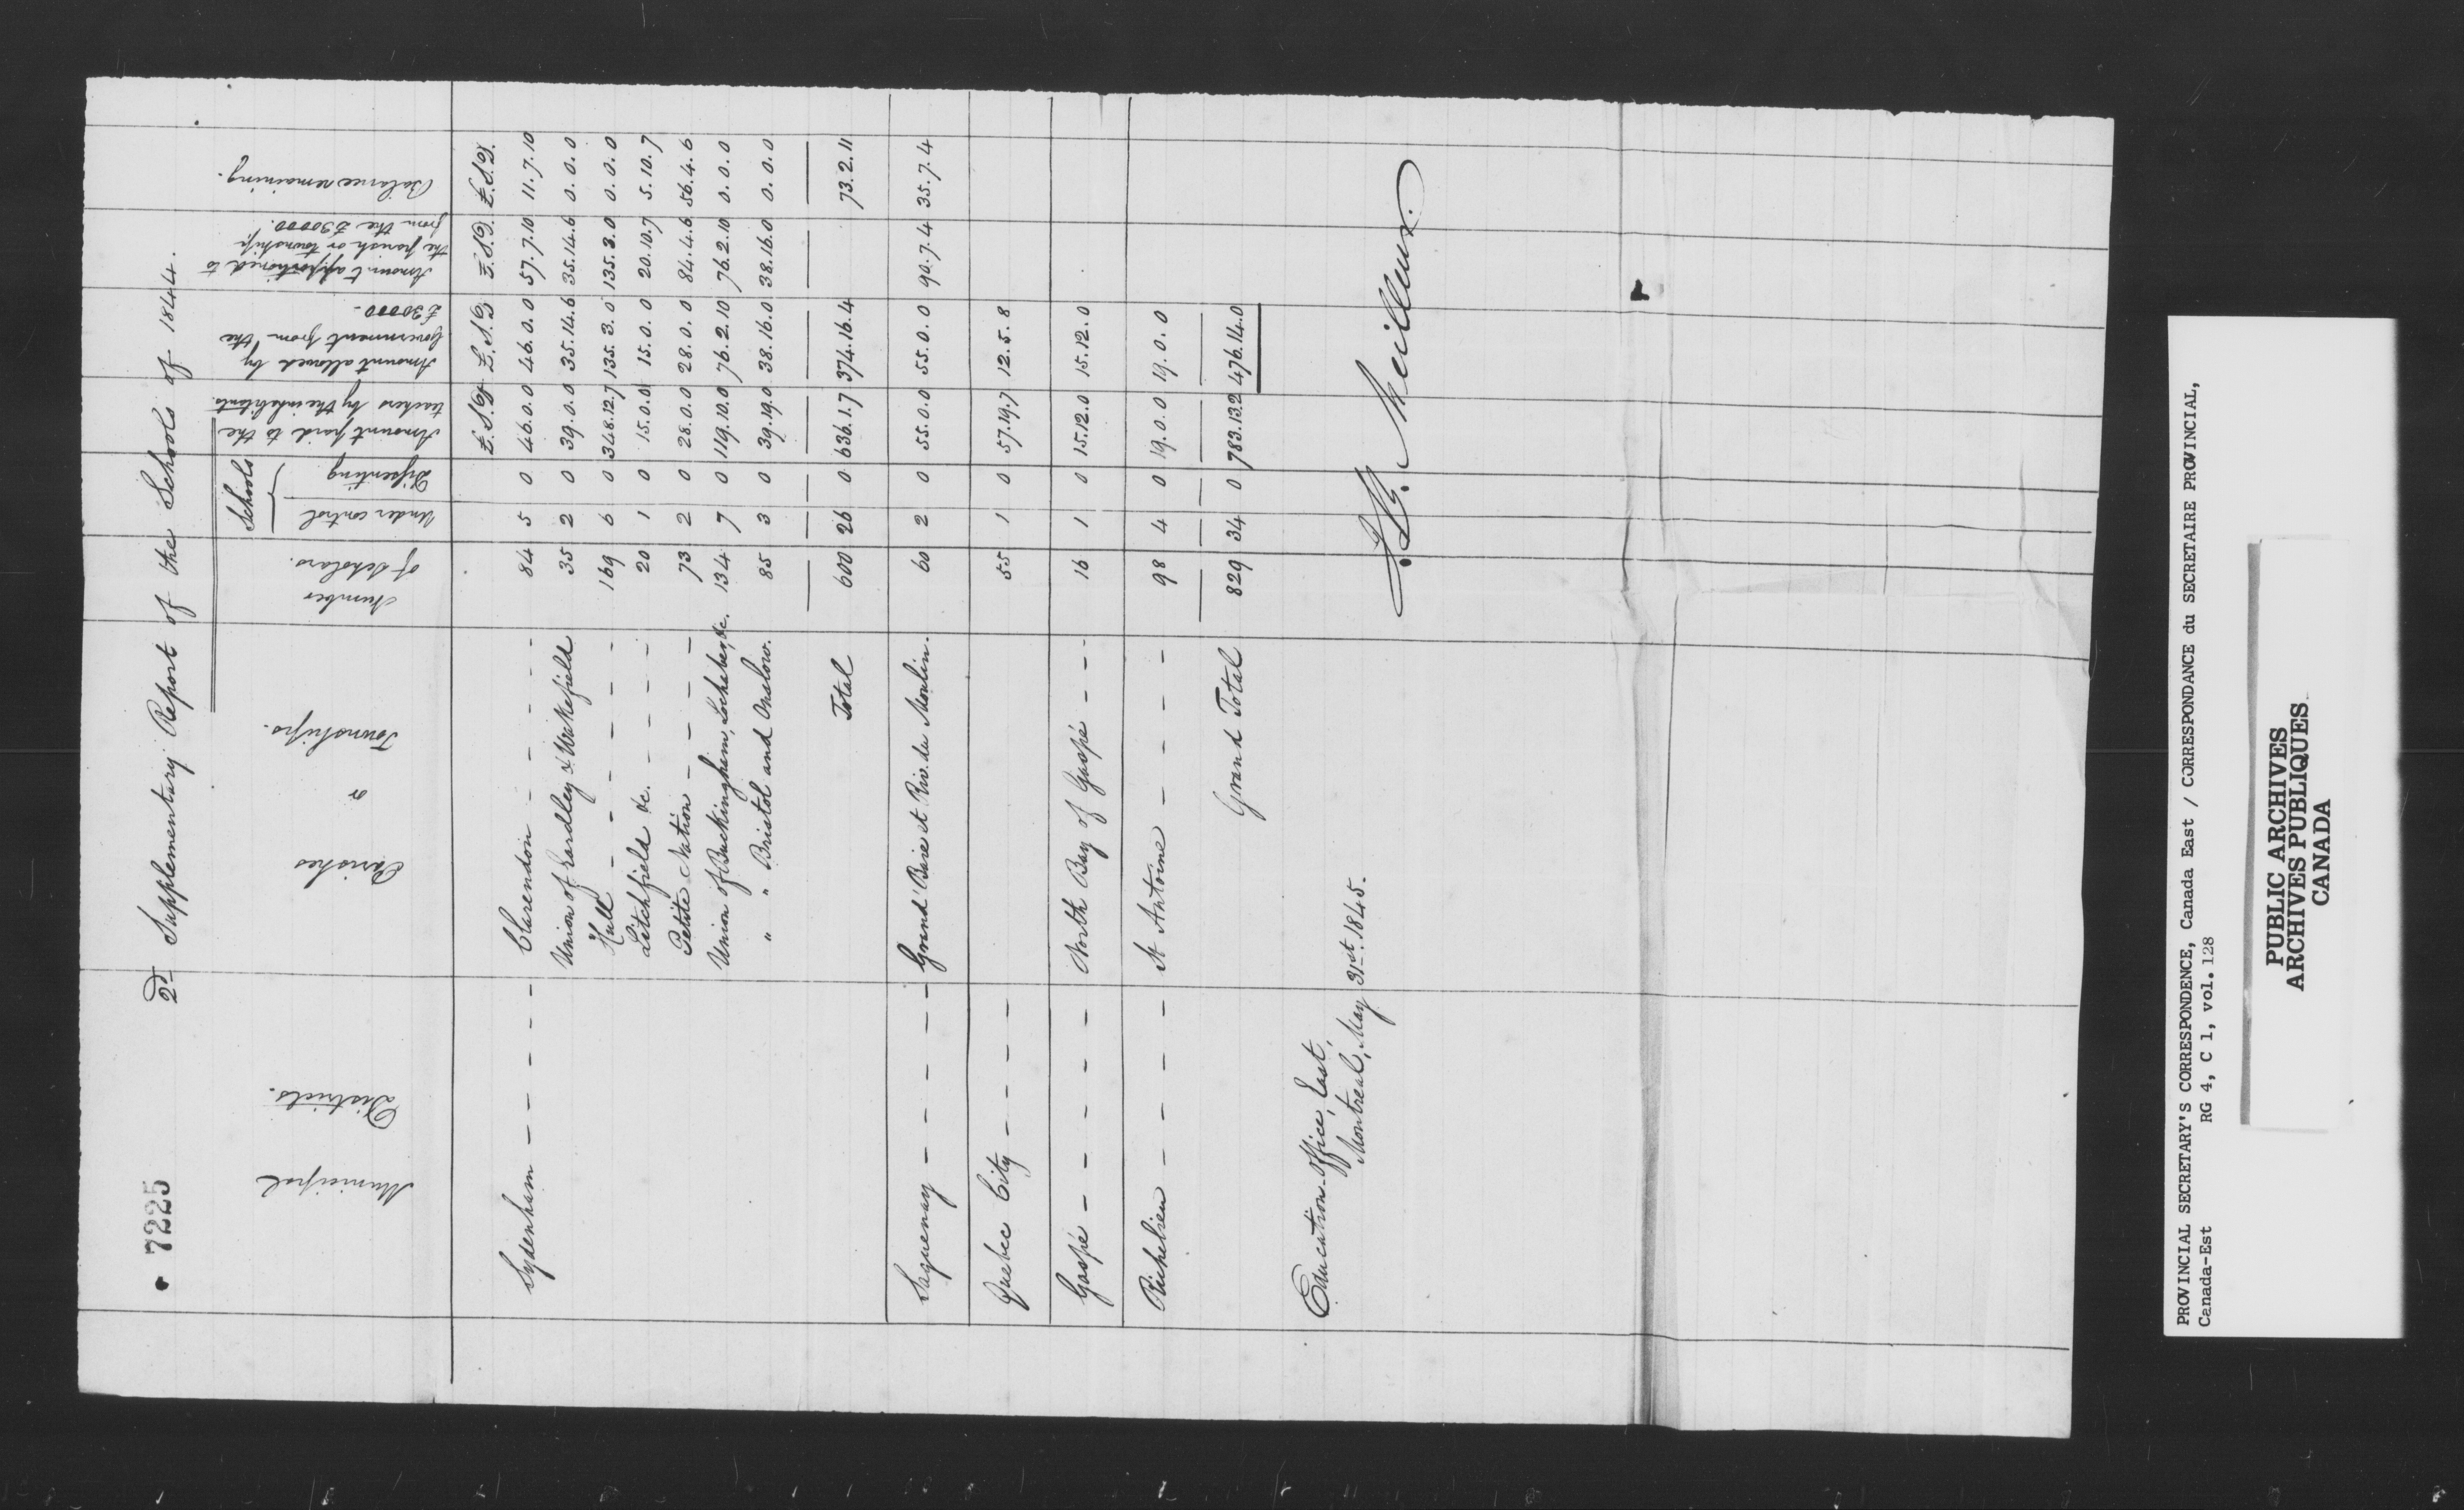 7225
2d Supplementary Report of the Schools of 1844.
Municipal Districts.
Parishes or Townships.
Number of Scholars.
Schools
Under control
Dissenting
Amount paid to the teachers by the inhabitants.
Amount allowed by Government from the £30000-
Amount apportioned to the parish or township from the £30000.
Balance remaining.
£.S.D. £.S.D. £.S.D. £.S.D.
Sydenham - - - - - Clarendon - - - - - 84 5 0 46.0.0 46.0.0 57.7.10 11.7.10
Union of Eardley & Wakefield 35 2 0 39.0.0 35.14.6 35.14.6 0.0.0
Hull - - - - - 169 6 0 348.12.7 135.3.0 135.3.0 0.0.0
Litchfield &c. - - - - 20 1 0 15.0.0 15.0.0 20.10.7 5.10.7
Petite Nation - - - - 73 2 0 28.0.0 28.0.0 84.4.6 56.4.6
Union of Buckingham, Lochaber, &c. 134 7 0 119.10.0 76.2.10 76.2.10 0.0.0
" " Bristol and Onslow. 85 3 0 39.19.0 38.16.0 38.16.0 0.0.0
Total 600 26 0 636.1.7 374.16.4 73.2.11
Saguenay - - - - - Grand Baie et Riv. du Moulin. 60 2 0 55.0.0 55.0.0 90.7.4 35.7.4
Quebec City - - - - 55 1 0 57.19.7 12.5.8
Gaspé - - - - - North Bay of Gaspé - - - 16 1 0 15.12.0 15.12.0
Richelieu - - - - - St Antoine - - - - - 98 4 0 19.0.0 19.0.0
Grand Total 829 34 0 783.13.2 476.14.0
Education Office, East,
Montreal, May 31st. 1845.
J.B. Meilleur.
PROVINCIAL SECRETARY'S CORRESPONDENCE, Canada East / CORRESPONDANCE du SECRETAIRE PROVINCIAL,
Canada-Est RG 4, C 1, vol. 128
PUBLIC ARCHIVES
ARCHIVES PUBLIQUES
CANADA